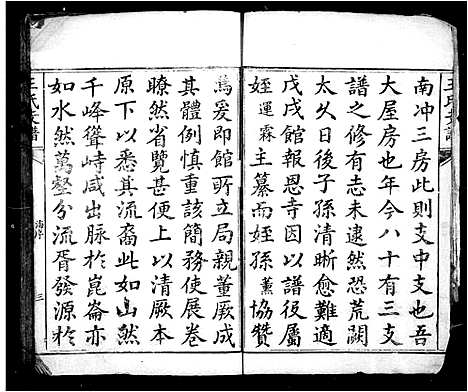 南冲三房此則支中支也吾
大屋房也年今八十有三支
譜之修有志未逮然恐荒闕
太久日後子孫清晰愈難適
戊戌館報恩寺因以譜役屬
姪運霖主纂而姪孫薰協贊
焉爰即館所立局親董厥成
其體例慎重該簡務使展卷
瞭然省覽甚便上以清厥本
原下以悉其流裔此如山然
千峰聳峙咸出脈於崑崙亦
如水然萬壑分流胥發源於
王氏支譜
序
三